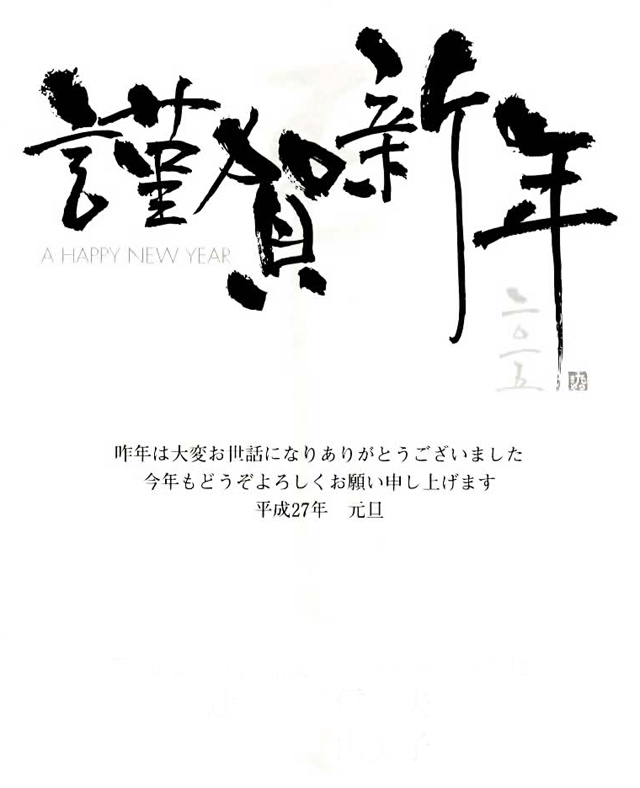 謹賀新年
A HAPPY NEW YEAR
二〇一五
昨年は大変お世話になりありがとうございました
今年もどうぞよろしくお願い申し上げます
平成27年　元旦